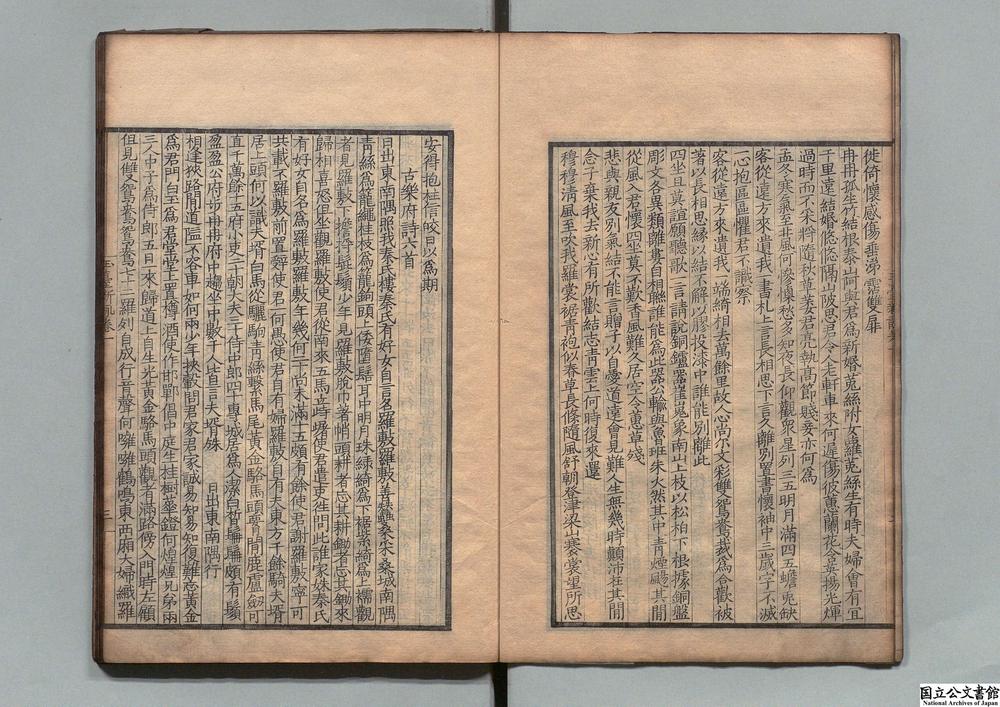 徙倚懷感傷垂涕霑雙扉
冉冉孤生竹結根泰山阿與君為新婚菟絲附女蘿菟絲生有時夫婦會有宜
千里遠結婚悠悠隔山陂思君令人老軒車來何遲傷彼蕙蘭花含英揚光輝
過時而不采將隨秋草萎君亮執高節賤妾亦何為
孟冬寒氣至北風何慘慄愁多知夜長仰觀眾星列三五明月滿四五蟾兔缺
客從遠方來遺我一書札上言長相思下言久離別置書懷袖中三歲字不滅
一心抱區區懼君不識察
客從遠方來遺我一端綺相去萬餘里故人心尚爾文彩雙鴛鴦裁為合歡被
著以長相思緣以結不解以膠投漆中誰能別離此
四坐且莫諠願聽歌一言請說銅鑪器崔嵬象南山上枝以松柏下根據銅盤
彫文各異類離婁自相聯誰能為此器公輸與魯班朱火然其中青煙颺其間
從風入君懷四坐莫不歎香風難久居空令蕙草殘
悲與親友別氣結不能言贈子以自愛道遠會見難人生無幾時顛沛在其間
念子棄我去新心有所歡結志青雲上何時復來還
穆穆清風至吹我羅裳裾青袍似春草長條隨風舒朝登津梁山褰裳望所思
安得抱柱信皎日以為期
古樂府詩六首
日出東南隅照我秦氏樓秦氏有好女自言名羅敷羅敷善蠶桑采桑城南隅
青絲為籠繩桂枝為籠鉤頭上倭墮髻耳中明月珠綠綺為下裾紫綺為上襦觀
者見羅敷下擔捋髭鬚少年見羅敷脫巾著帩頭耕者忘其耕鋤者忘其鋤來
歸相喜怒但坐觀羅敷使君從南來五馬立踟躕使君遣吏往問此誰家姝秦氏
有好女自名為羅敷羅敷年幾何二十尚未滿十五頗有餘使君謝羅敷寧可
共載不羅敷前置辭使君一何愚使君自有婦羅敷自有夫東方千餘騎夫壻
居上頭何以識夫壻白馬從驪駒青絲繫馬尾黃金絡馬頭腰間鹿盧劒可
直千萬餘十五府小吏二十朝大夫三十侍中郎四十專城居為人潔白皙鬑鬑頗有鬚
盈盈公府步冉冉府中趨坐中數千人皆言夫壻殊 日出東南隅行
相逢狹路間道隘不容車如何兩少年挾轂問君家君家誠易知易知復難忘黃金
為君門白玉為君堂堂上置樽酒使作邯鄲倡中庭生桂樹華鐙何煌煌兄弟兩
三人中子為侍郎五日一來歸道上自生光黃金絡馬頭觀者滿路傍入門時左顧
但見雙鴛鴦鴛鴦七十二羅列自成行音聲何噰噰鶴鳴東西廂大婦織羅
国立公文書館
National Archives of Japan